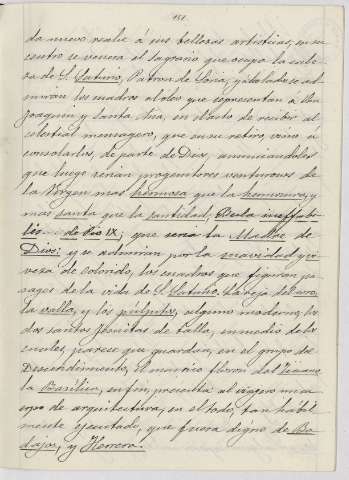 151.
da nuevo realce á sus bellezas artisticas, en su
centro se venera el sagrario que ocupa la cabe-
za de S. Saturio, Patron de Soria, y á los lados se ad-
miran los cuadros al oleo que representan á San
Joaquin y Santa Ana, en el acto de recibir al
celestial mensagero, que en su retiro, vino á
consolarlos, de parte de Dios, anunciandoles
que luego serian progenitores venturosos de
la Virgen mas hermosa que la hermosura, y
mas santa que la santidad,
de Pio IX; que seria la Madre de
Dios: y se admiran por la suavidad y vi-
veza de colorido, los cuadros que figuran pa-
sages de la vida de S. Saturio. La reja del
la valla, y los púlpitos, algo modernos, los
dos santos Jesuitas de talla, en medio de los
cuales, parece que guardan, en el grupo del
Descendimiento, El marco floron del Ticiano
la Basilica, en fin, presenta al viagero un cu-
erpo de arquitectura, en el todo, tan habil
mente ejecutado, que fuera digno de Ba-
dajoz, y Herrera.